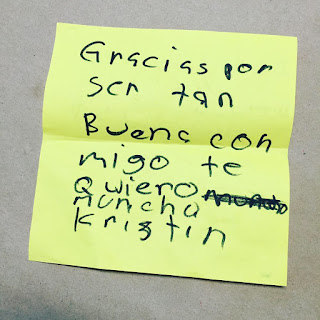 Gracias por
ser tan
Buena con
migo te
Quiero
muncha
Kristin